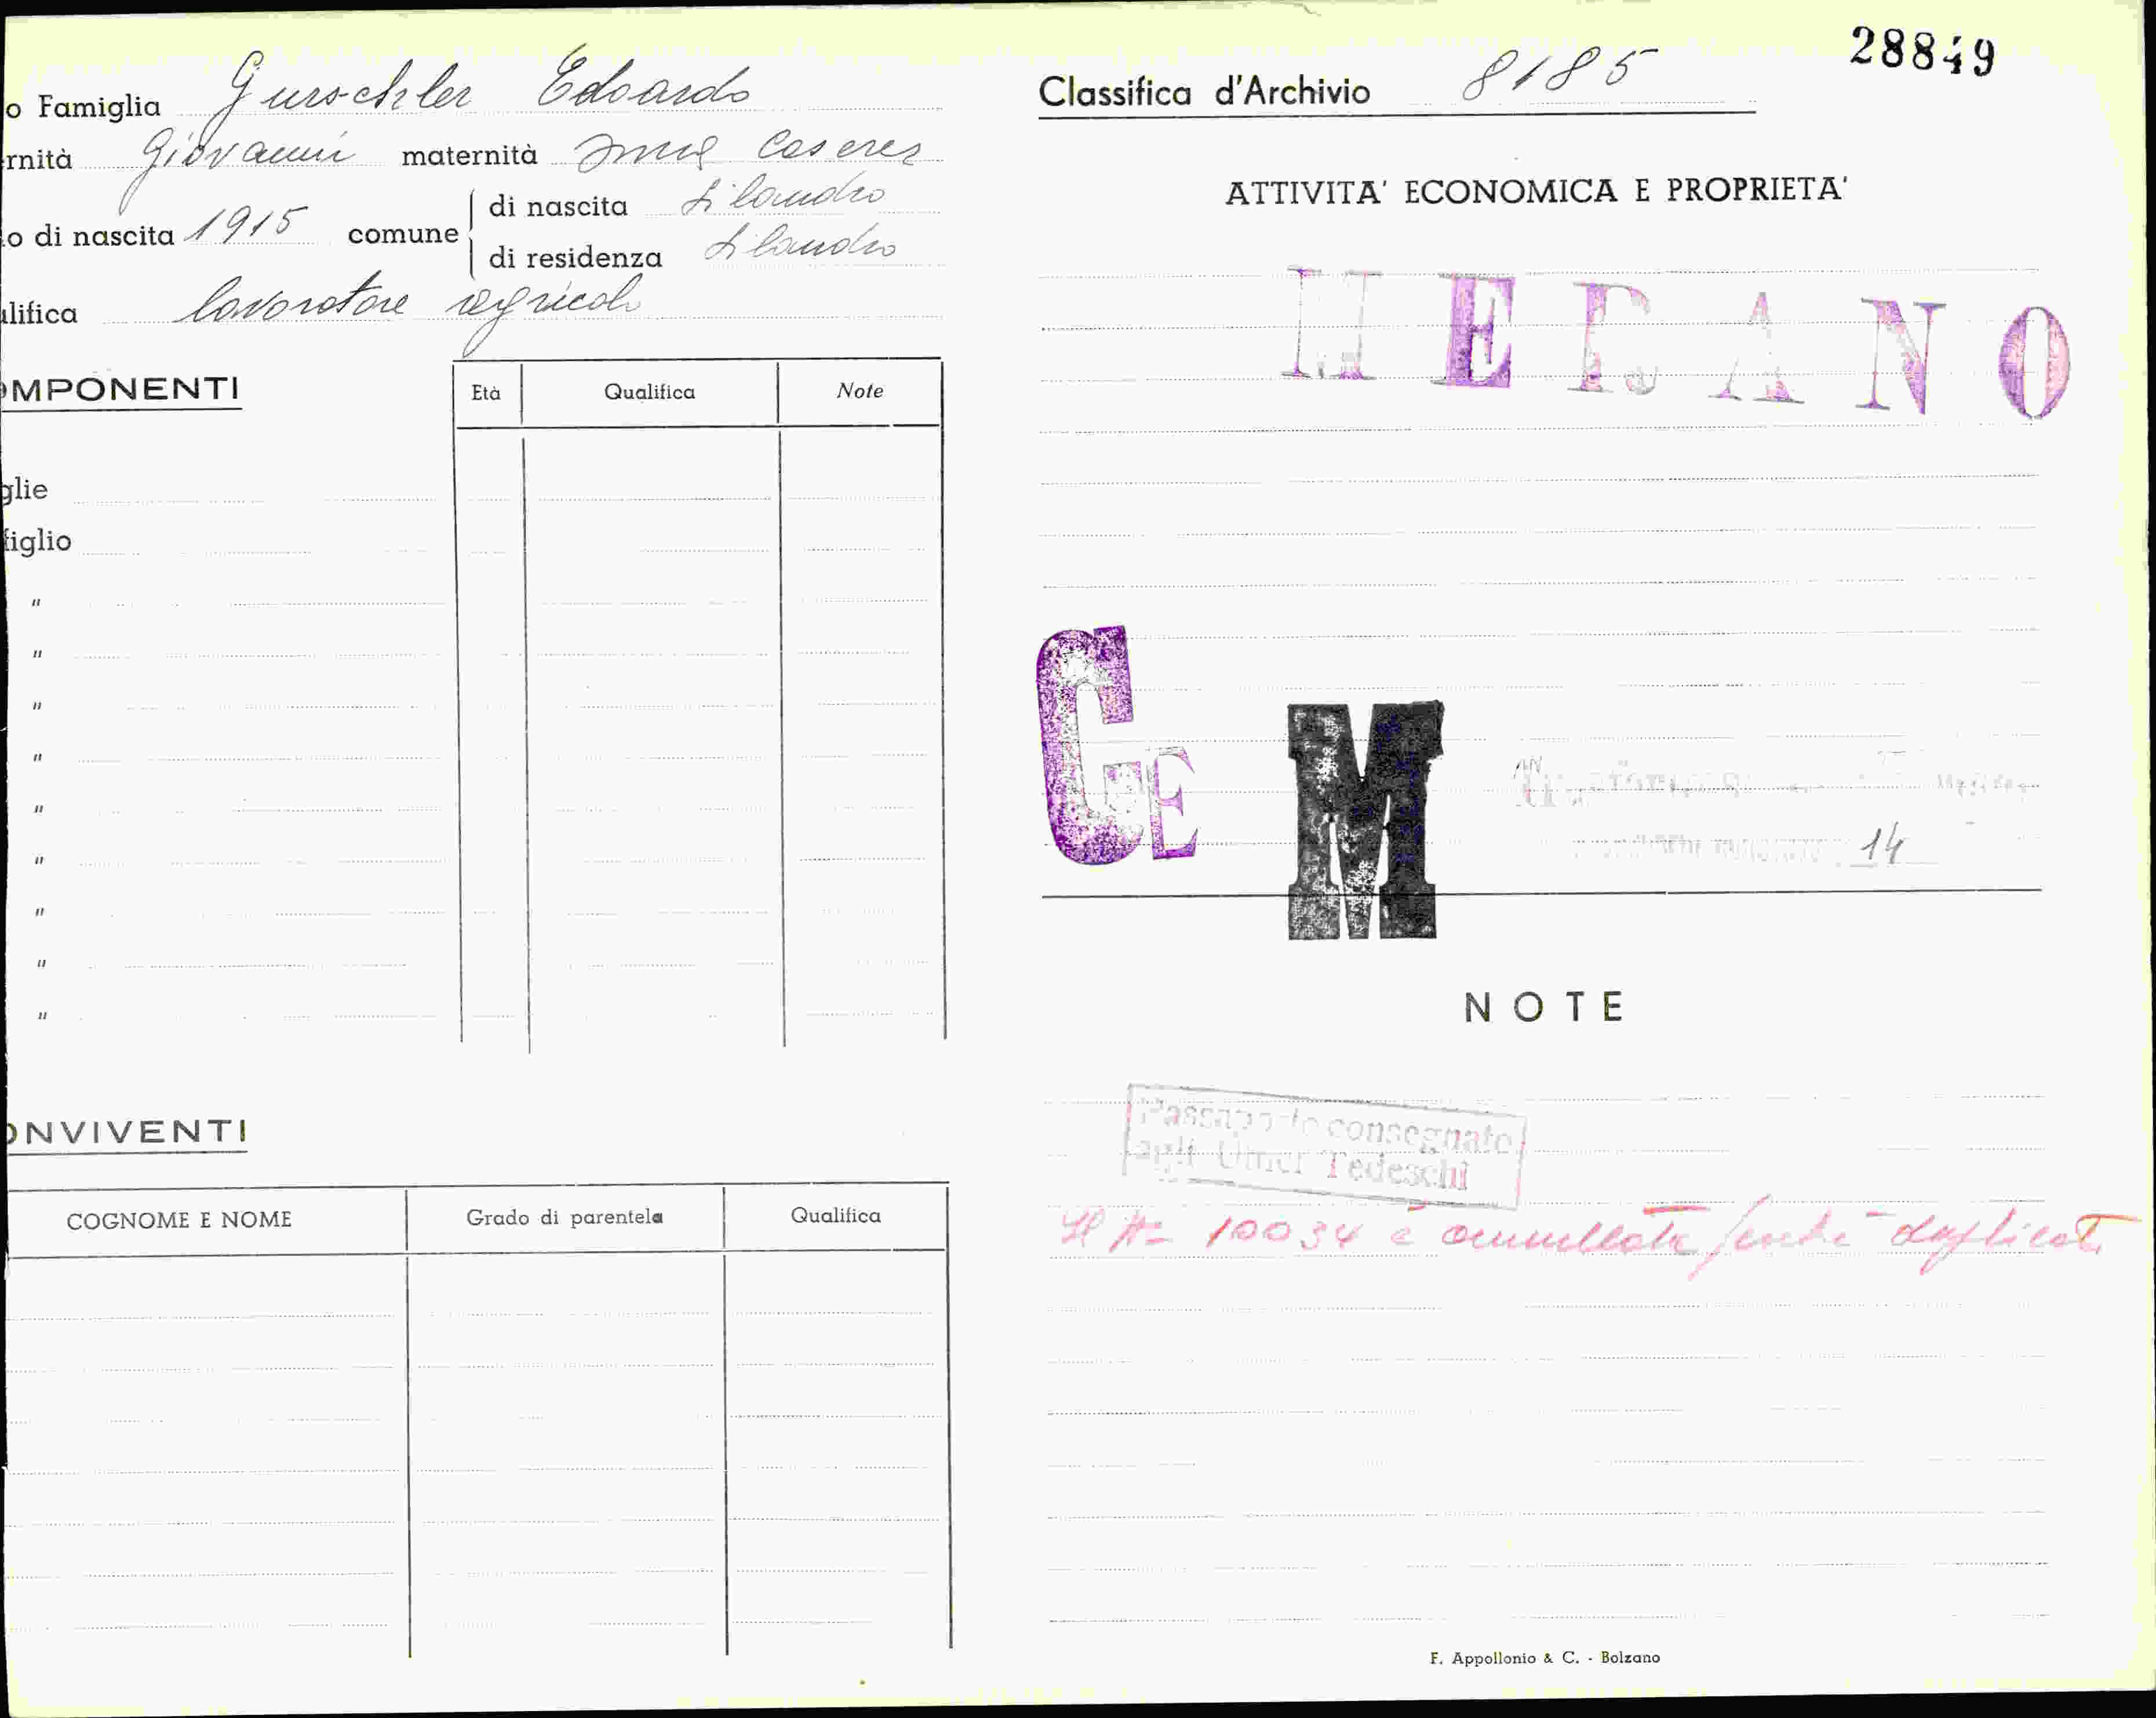 o Famiglia Gurschler Edoardo
rnità Giovanni maternità Caserer
o di nascita 1915 comune di nascita Silandro
di residenza Silandro
lifica lavoratore agricolo
OMPONENTI
Età Qualifica Note
glie
figlio
"
"
"
"
"
"
"
"
"
ONVIVENTI
COGNOME E NOME Grado di parentela Qualifica
28849
Classifica d'Archivio 8185
ATTIVITA' ECONOMICA E PROPRIETA'
MERANO
G E M
14
NOTE
Passaporto consegnato
agli Uffici Tedeschi
10034 è annullata perchè duplicata
F. Appollonio & C. - Bolzano